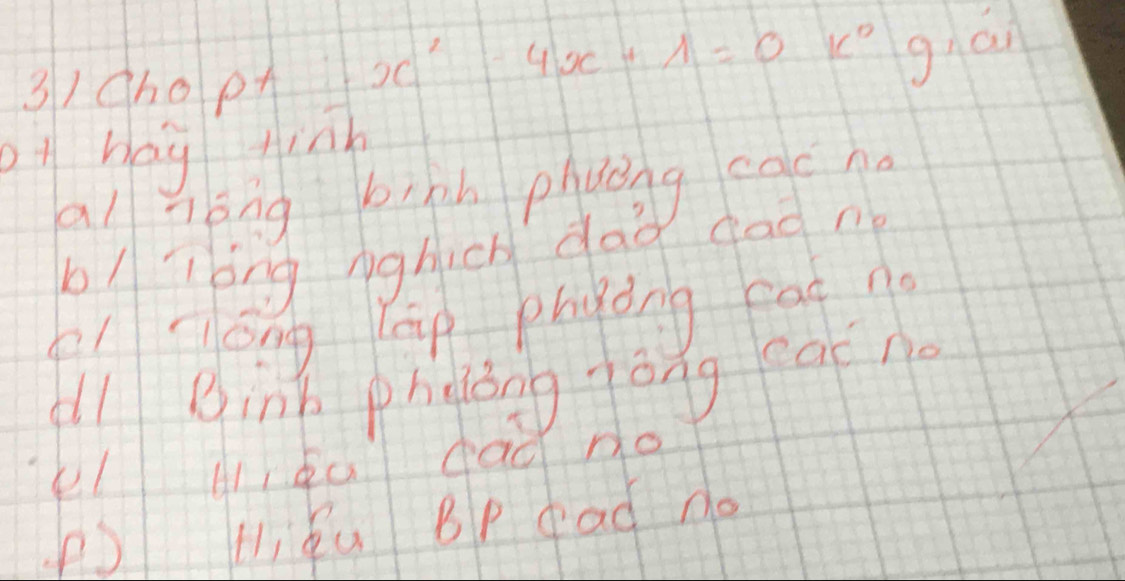 3) Cho pt x² - 4x + 1 = 0 k° giải
pt hãy tính
a) Tổng bình phương các no
b) Tổng nghịch đảo các no
c) Tổng lập phương các no
d) Bình phương tổng các no
e) Hiệu các no
f) Hiệu BP các no